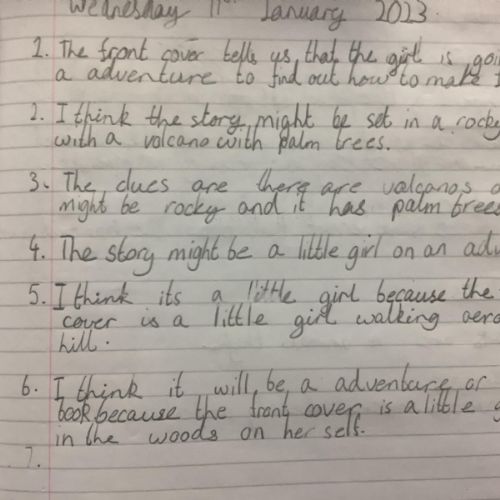 Wednesday 11th January 2023.
1. The front cover tells us, that the girl is
a adventure to find out how to make
2. I think the story might be set in a rocky
with a volcano with palm trees.
3. The clues are there are volcanos
might be rocky and it has palm trees
4. The story might be a little girl on an
5. I think its a little girl because the
cover is a little girl walking
hill.
6. I think it will be a adventure or
book because the front cover is a little
in the woods on her self.
7.